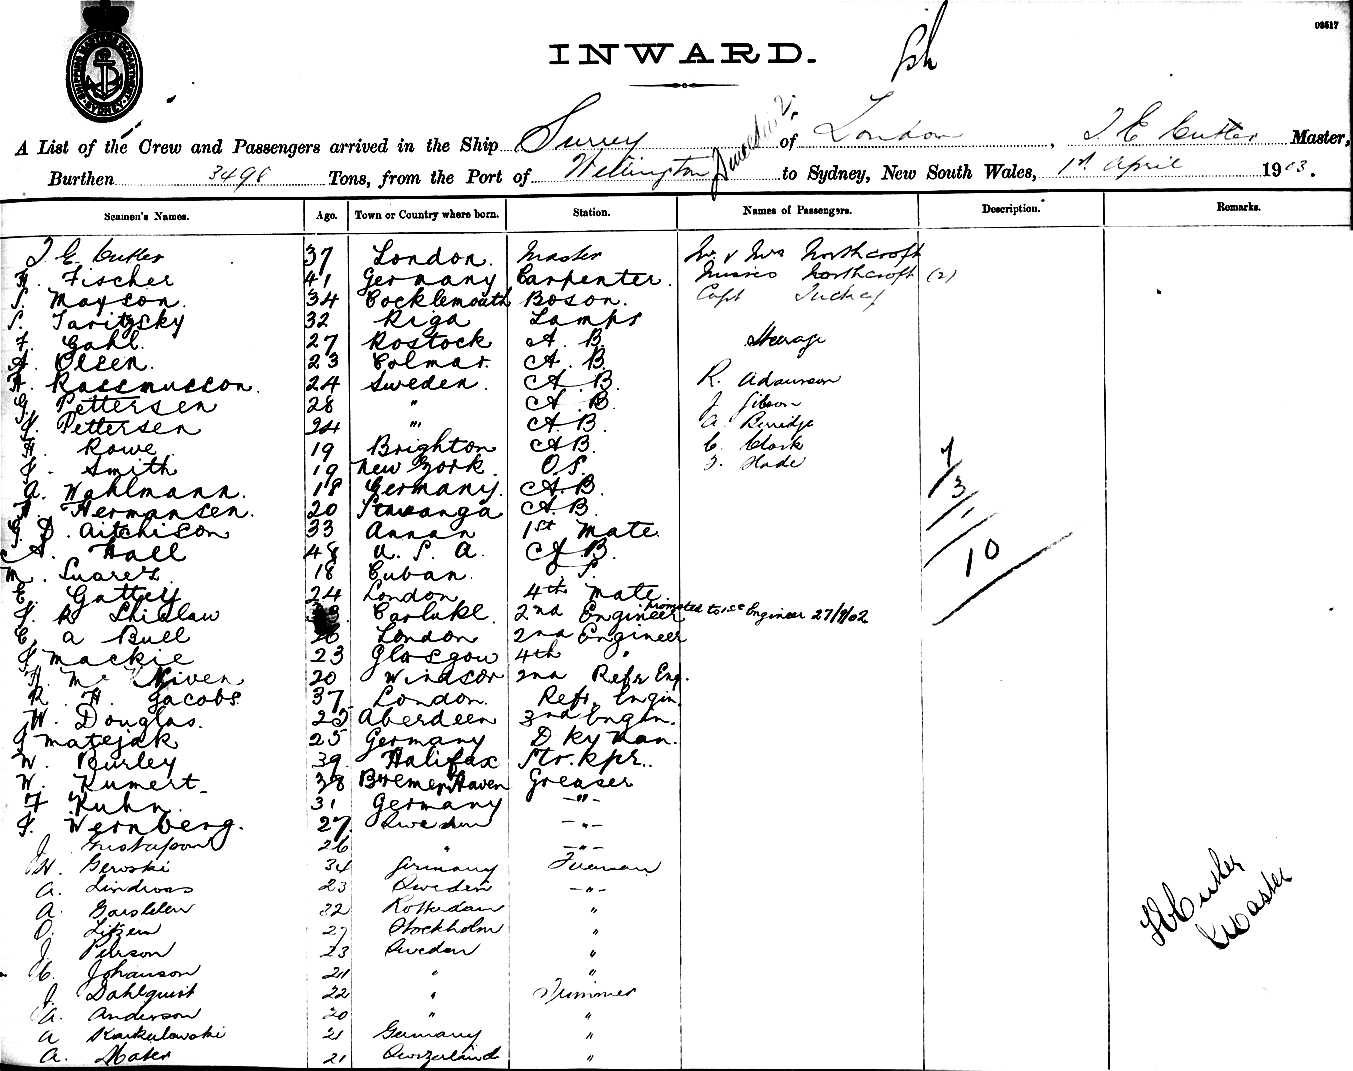 03517
INWARD.
A List of the Crew and Passengers arrived in the Ship Surrey of London, J E Cutler Master,
Burthen 3498 Tons, from the Port of Wellington Dunedin to Sydney, New South Wales, 1st April 1903.
Seamen's Names. Age. Town or Country where born. Station. Names of Passengers. Description. Remarks.
J E Cutler 37 London. Master Mr & Mrs Northcroft
Fischer 41 Germany Carpenter. Misses Northcroft (2)
Mayson. 34 Cocklemouth Boson. Capt
S. Taritzsky 32 Riga Lamps
F. Gahl. 27 Rostock A. B. Steerage
A. Olsen. 23 Colmar. A. B.
A. Rassmusson. 24 Sweden. A. B. R. Adamson
G. Pettersen 28 " A. B. J. Gibson
Pettersen 24 " A. B. A.
H. Rowe 19 Brighton A B. C. Clark
J. Smith 19 New York. O. S.
A. Wahlmann. 18 Germany. A. B. 7
Hermansen. 20 Stavanga A B. 3
G. D. Aitchison 33 Annan 1st Mate 1
A. Hall 48 U. S. A. A. B. 10
M. Suarez. 18 Cuban.
E. Gattey 24 London 4th Mate
J. R. Shirlaw Carluke. 2nd Engineer promoted to 1st Engineer 27/8/02
C. A Bull London 2nd Engineer
J Mackie 23 Glasgow 4th "
Mc Niven 20 Windsor 2nd Refr Eng.
R. H. Jacobs 37 London. Refr. Engin
W. Douglas. 25 Aberdeen 3rd Engin.
J Matejak 25 Germany D ky man.
W. Burley 39 Halifax Str. kpr.
W. Kumert 38 Bremer Haven Greaser
F Kuhn. 31 Germany "
J. Wernberg. 27 Sweden "
J. Gustafson 26 " "
W. Geroski 34 Germany Fireman
A. 23 Sweden "
A. 22 Rotterdam "
O. 27 Stockholm "
J. Person 23 Sweden "
C. Johanson 21 " "
J. Dahlquist 22 " Trimmer
A. Anderson 20 " "
A 21 Germany "
A. 21 Switzerland "
J E Cutler
Master